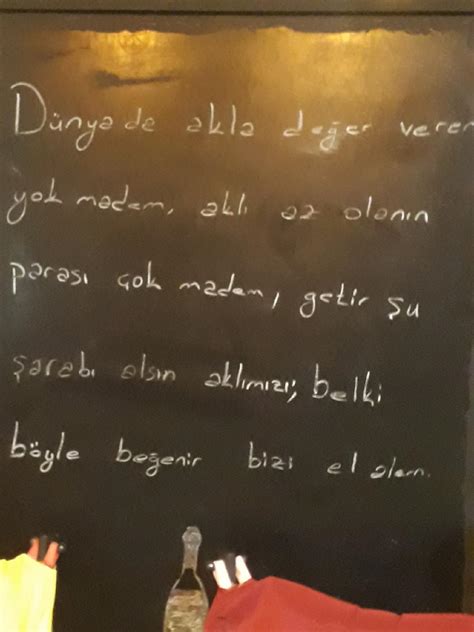 Dünyada akla değer veren
yok madem, aklı az olanın
parası çok madem, getir şu
şarabı alsın aklımızı; belki
böyle beğenir bizi el alem.